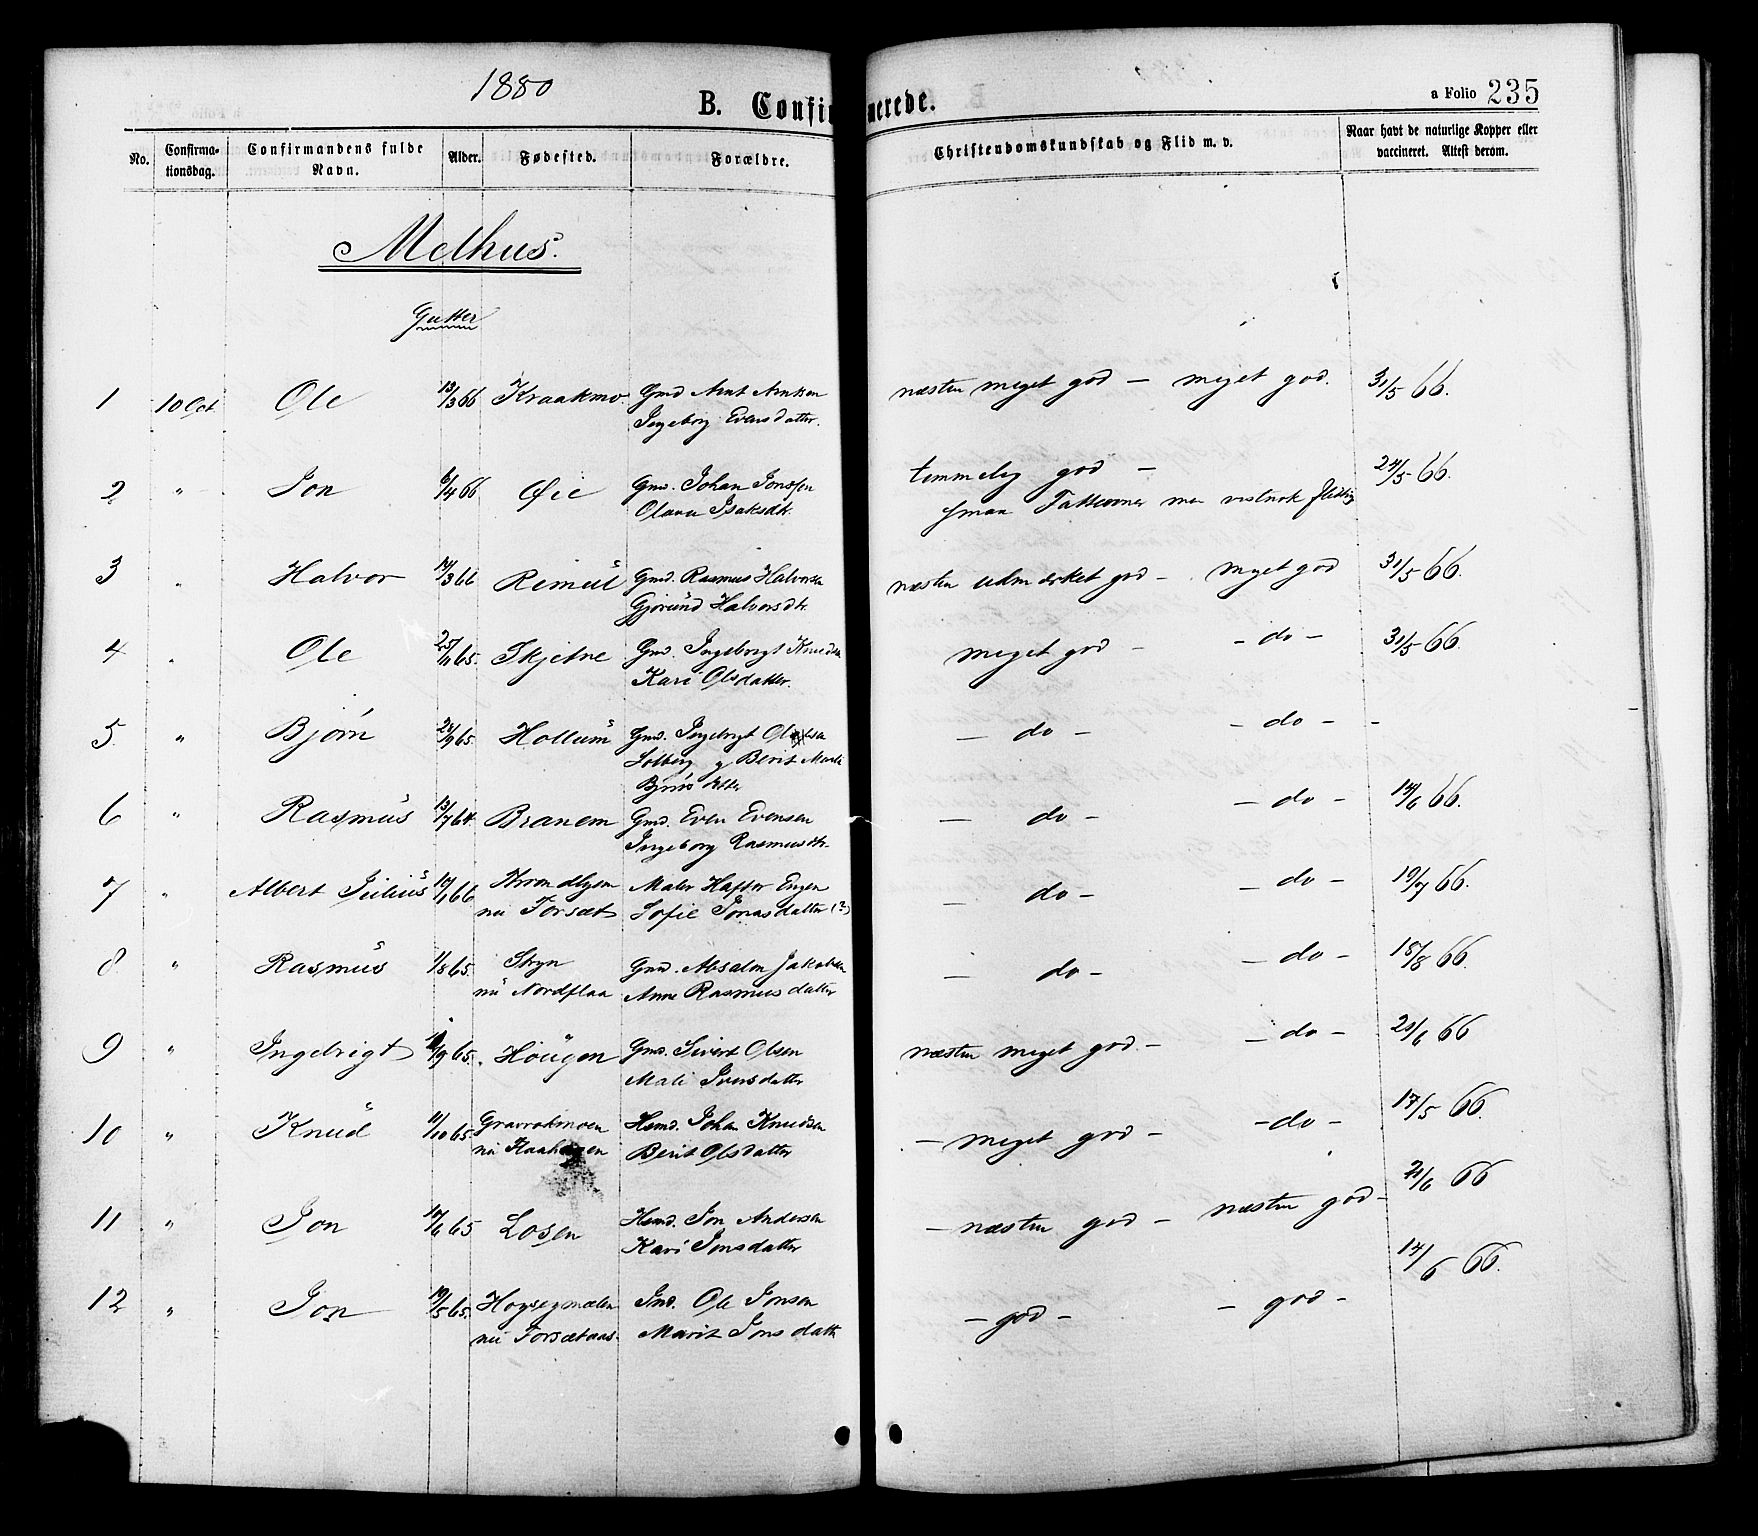 1880
B. Confirmerede.
a Folio 235
No. Confirmationsdag. Confirmandens fulde Navn. Alder. Fødested. Forældre. Christendomskundskab og Flid m. v. Naar havt de naturlige Kopper eller vaccineret. Attest derom.
Melhus.
Gutter
1 10 Oct Ole 13/3 66 Kraakmo. Gmd Arnt Arntsen næsten meget god — meget god. 31/5 66.
Ingeborg Evensdatter.
2 " Jon 6/4 66 Øie Gmd. Johan Jonssen temmelig god — 24/5 66.
Olava Isaksdtr. smaa men vistnok flittig
3 " Halvor 14/3 66 Rimul Gmd. Rasmus Halvorsen næsten udmærket god — meget god 31/5 66.
Gjørund Halvorsdtr.
4 " Ole 25/11 65. Skjetne Gmd. Ingebrigt Knudsen meget god — — do — 31/5 66.
Kari Olsdatter.
5. " Bjørn 28/9 65. Hollum Gmd. Ingebrigt — do — — do — -
Solberg og Berit Marta
Bjørnsdtr
6 " Rasmus 13/7 64. Branem Gmd. Even Evensen — do — — do — 14/6 66.
Ingeborg Rasmusdtr.
7 " Albert Julius 17/1 66 Trondhjem Maler Haftor Engen — do — — do — 19/7 66.
nu Forsæt Sofie Jonasdatter (?)
8 " Rasmus 1/8 65. Stryn Gmd. Absalon Jakobsen — do — — do — 18/8 66.
nu Nordflaa Anne Rasmusdatter
9 " Ingebrigt /9 65. Hougen Gmd. Sivert Olsen næsten meget god. — — do — 21/6 66
Mali Iversdatter
10 " Knud 11/10 65. Gravrokmoen Hsmd. Johan Knudsen — meget god — — do — 17/5 66.
nu Kaahaugen Berit Olsdatter
11 " Jon 14/6 65 Losen Hsmd. Jon Andersen — næsten god — næsten god — 21/6 66
Kari Jonsdatter
12 " Jon 19/5 65. Hogsegmælen Ind. Ole Jonsen — god — — god — 14/6 66.
nu Forsætaas. Marit Jonsdatt